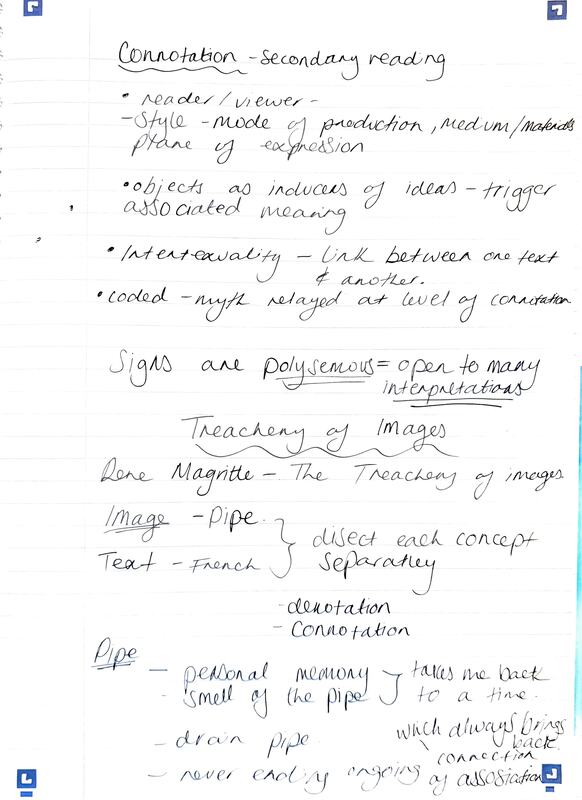 Connotation - secondary reading
• reader/viewer -
- Style - mode of production, medium/materials
plane of expression
• objects as inducers of ideas - trigger
associated meaning
• Intertexuality - link between one text
& another.
• coded - myth relayed at level of connotation
Signs are polysemous = open to many
interpretations
Treachery of Images
Rene Magritte - The Treachery of images
Image - Pipe.
Text - French
disect each concept
separatley
- denotation
- Connotation
Pipe
- personal memory
- smell of the pipe
takes me back
to a time.
- drain pipe
which always brings
back.
- never ending ongoing connection
of assosiation